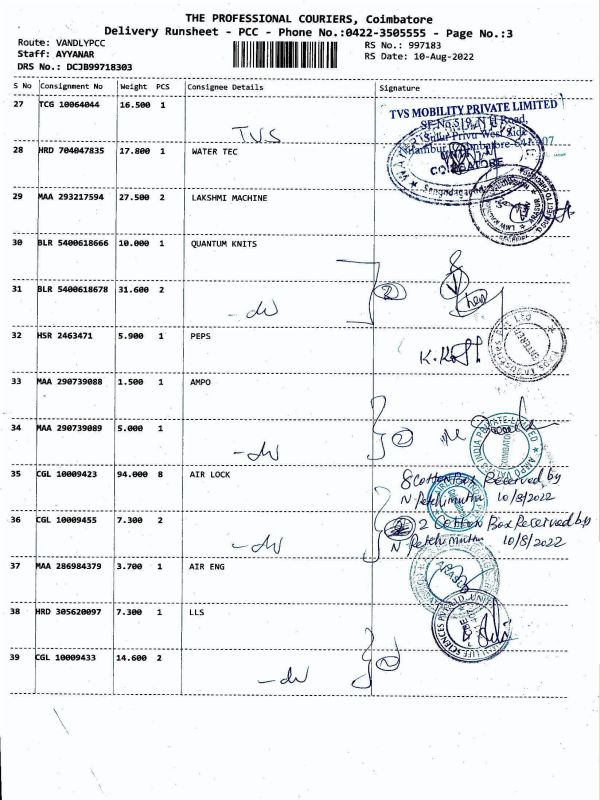 THE PROFESSIONAL COURIERS, Coimbatore
Delivery Runsheet - PCC - Phone No.:0422-3505555 - Page No.:3
Route: VANDLYPCC
Staff: AYYANAR
DRS No.: DCJB99718303
RS No.: 997183
RS Date: 10-Aug-2022
S No Consignment No Weight PCS Consignee Details Signature
27 TCG 10064044 16.500 1 TVS
TVS MOBILITY PRIVATE LIMITED
SF.No.519, N H Road,
COIMBATORE
28 HRD 704047835 17.800 1 WATER TEC
29 MAA 293217594 27.500 2 LAKSHMI MACHINE
30 BLR 5400618666 10.000 1 QUANTUM KNITS
31 BLR 5400618678 31.600 2 -do
2
32 HSR 2463471 5.900 1 PEPS
33 MAA 290739088 1.500 1 AMPO
34 MAA 290739089 5.000 1 -do
2
35 CGL 10009423 94.000 8 AIR LOCK
8 Cotton Box Received by
N Petchimuthu 10/8/2022
36 CGL 10009455 7.300 2 -do
2 Cotton Box Received by
N Petchimuthu 10/8/2022
37 MAA 286984379 3.700 1 AIR ENG
38 HRD 305620097 7.300 1 LLS
39 CGL 10009433 14.600 2 -do
2